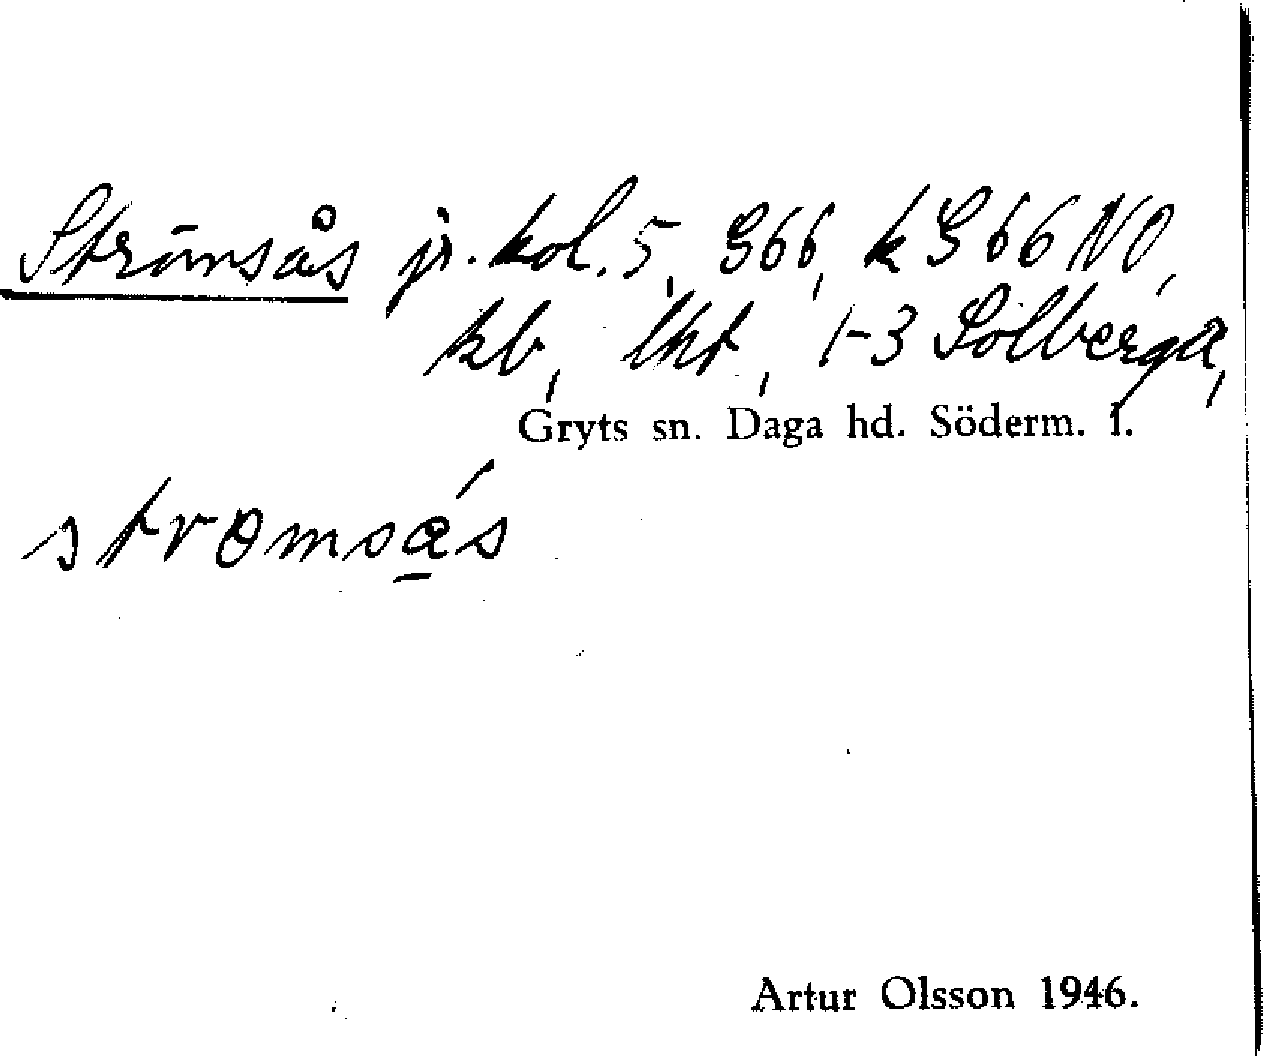 Strömsås jr. kol. 5, G66, k G66 NO,
kb, lht, 1-3 Solberga,
Gryts sn. Daga hd. Söderm. l.
strømsås
Artur Olsson 1946.